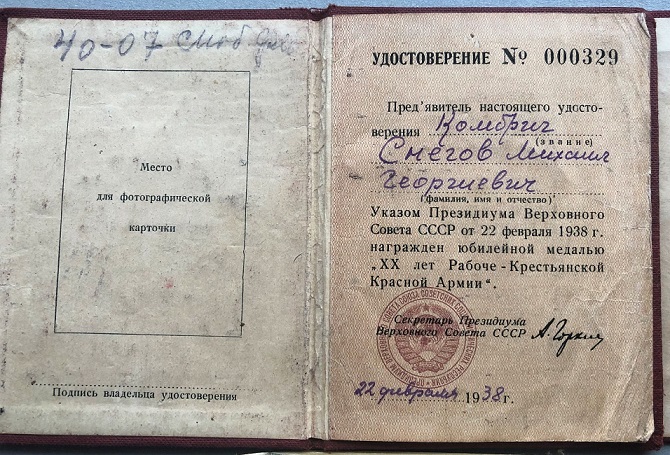 40-07
Место
для фотографической
карточки
Подпись владельца удостоверения
УДОСТОВЕРЕНИЕ № 000329
Пред'явитель настоящего удосто-
верения Комбриг
(звание)
Снегов Михаил
Георгиевич
(фамилия, имя и отчество)
Указом Президиума Верховного
Совета СССР от 22 февраля 1938 г.
награжден юбилейной медалью
„XX лет Рабоче-Крестьянской
Красной Армии“.
Секретарь Президиума
Верховного Совета СССР А. Горкин
22 февраля 1938 г.